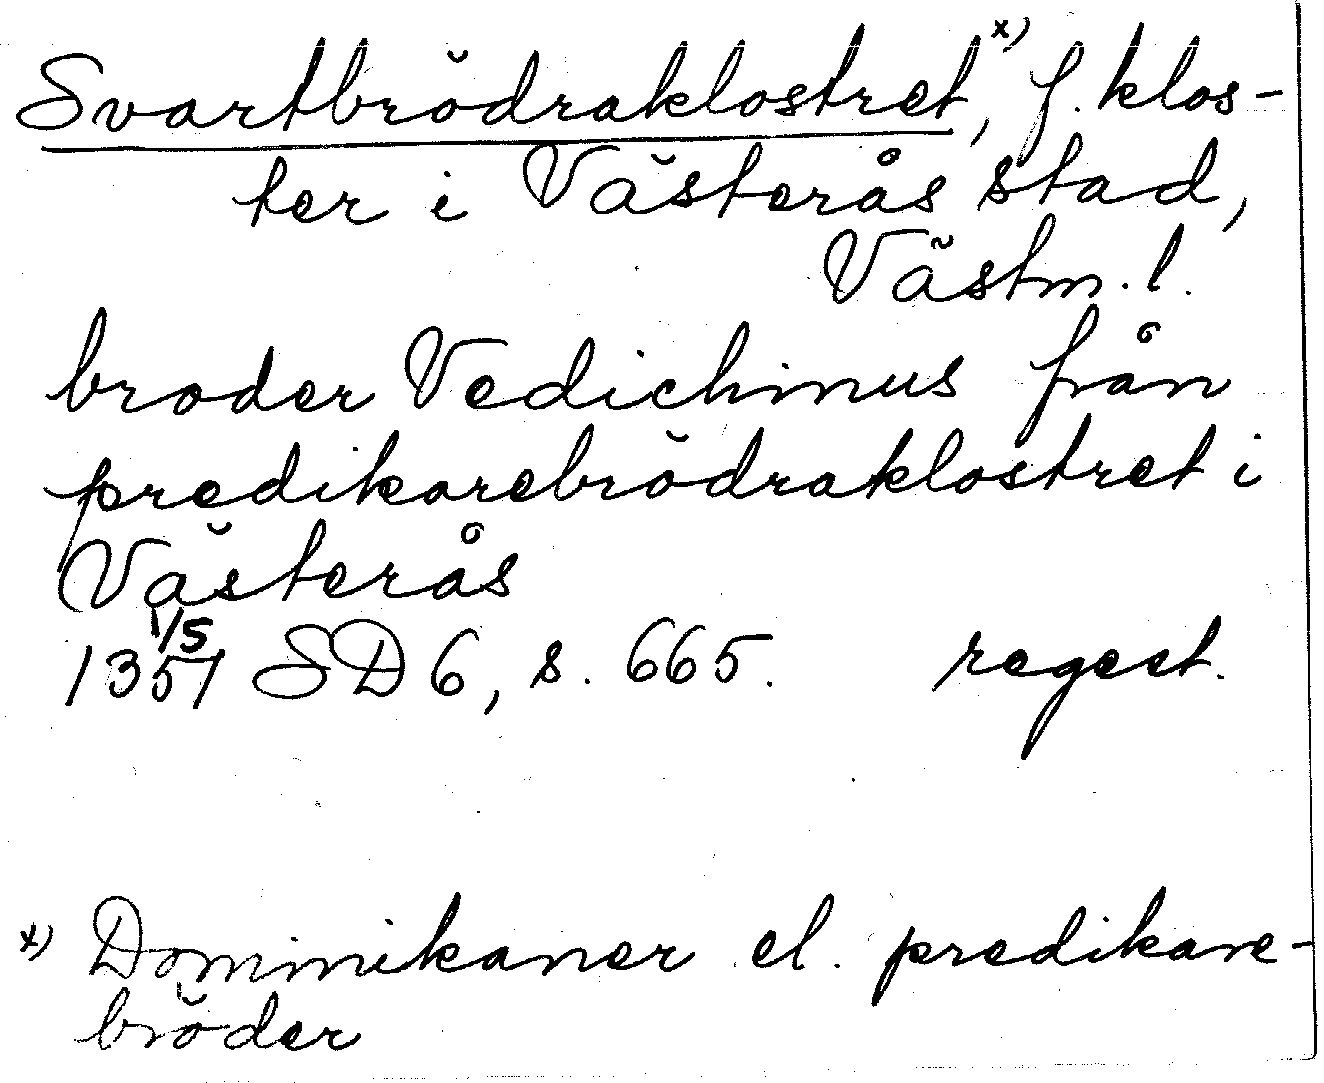 Svartbrödraklostret, x) f. klos-
ter i Västerås stad,
Västm. l.
broder Vedichinus från
predikarebrödraklostret i
Västerås
1/5
1357 SD 6, s. 665. regest.
x) Dominikaner el. predikare-
bröder